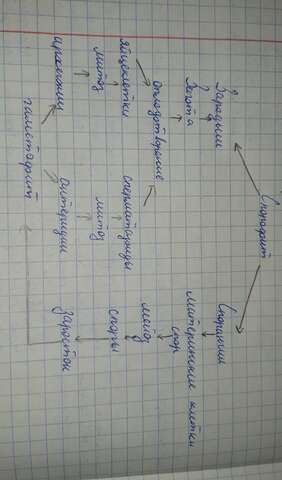 Спорофит
Зародыш
Зигота
оплодотворение
яйцеклетки
митоз
архегонии
сперматозоиды
митоз
антеридии
гаметофит
Спорангии
материнские клетки
спор
мейоз
споры
заросток